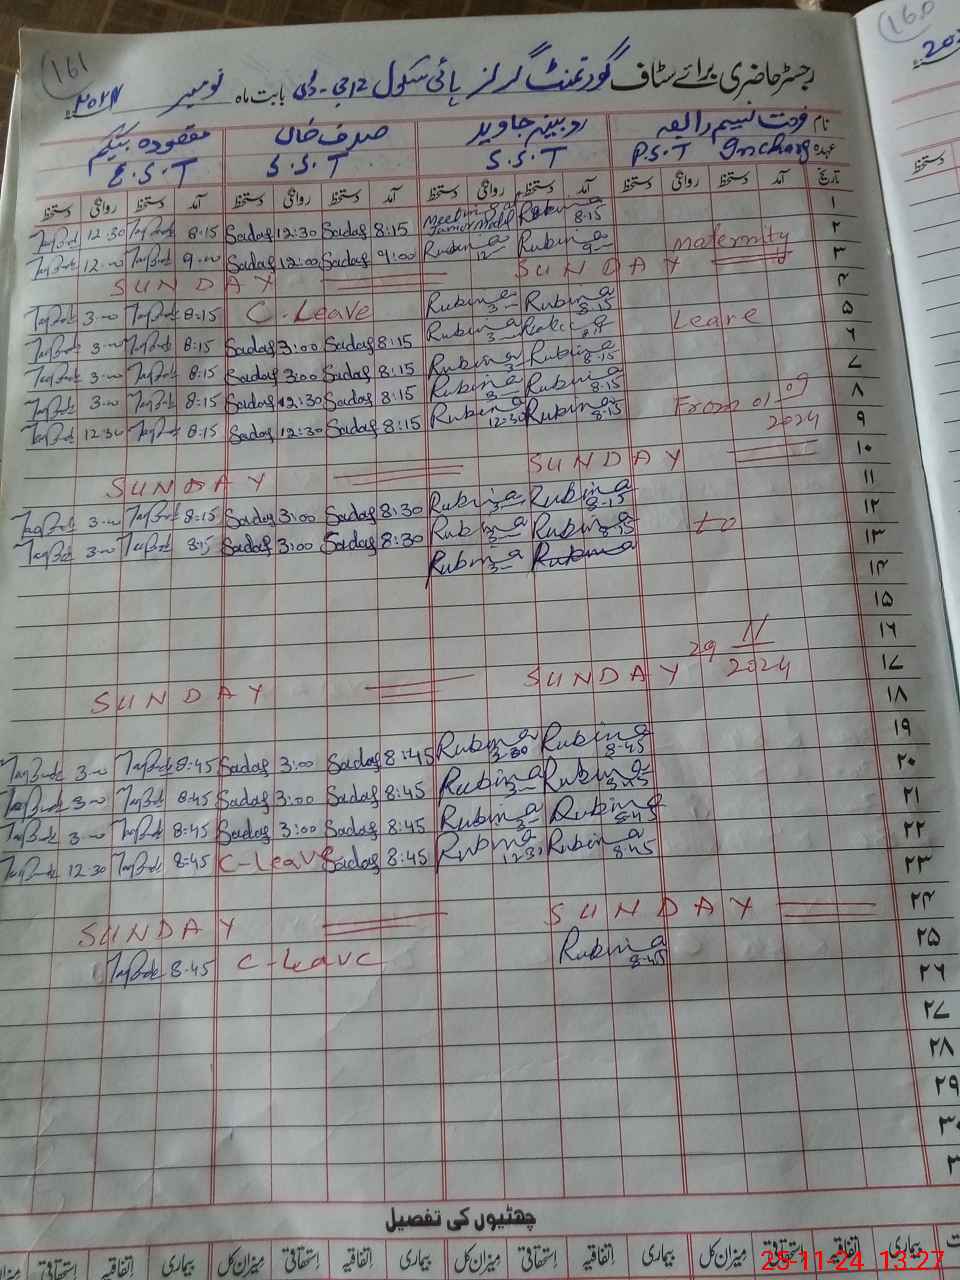 161
160
رجسٹر حاضری برائے سٹاف گورنمنٹ گرلز ہائی سکول 12 جی۔ڈی بابت ماہ نومبر ۲۰۲۴
نام فرحت نسیم رابعہ روبینہ جاوید صدف خان مقصودہ بیگم
عہدہ Incharg P.S.T S.S.T S.S.T E.S.T
تاریخ آمد دستخط روانگی دستخط آمد دستخط روانگی دستخط آمد دستخط روانگی دستخط آمد دستخط روانگی دستخط
۱ Rubina 8-15 Sadaf 8:15 Sadaf 12:30 8-15 12-30
۲ Rubina 9- Rubina 12- Sadaf 9:00 Sadaf 12:00 9-00 12-00
۳ Maternity SUNDAY SUNDAY
۴ Rubina 8-15 Rubina 3- C-Leave 8-15 3-00
۵ Leave Rubina 3- Sadaf 8:15 Sadaf 3:00 8-15 3-00
۶ Rubina 8-15 Rubina 3- Sadaf 8:15 Sadaf 3:00 8-15 3-00
۷ Rubina 8-15 Rubina 3- Sadaf 8:15 Sadaf 12:30 8-15 3-00
۸ From 01 09 2024 Rubina 8-15 Rubina 12:30 Sadaf 8:15 Sadaf 12:30 8-15 12-30
۹
۱۰ SUNDAY SUNDAY
۱۱ Rubina 8-15 Rubina 3- Sadaf 8:30 Sadaf 3:00 8-15 3-00
۱۲ to Rubina 8-15 Rubina 3- Sadaf 8:30 Sadaf 3:00 3-00
۱۳ Rubina Rubina 3-
۱۴
۱۵
۱۶ 29 11 2024
۱۷ SUNDAY SUNDAY
۱۸
۱۹ Rubina 8-45 Rubina 3-30 Sadaf 8:45 Sadaf 3:00 8-45 3-00
۲۰ Rubina 8-45 Rubina 3- Sadaf 8:45 Sadaf 3:00 8-45 3-00
۲۱ Rubina 8-45 Rubina 3- Sadaf 8:45 Sadaf 3:00 8-45 3-00
۲۲ Rubina 8-45 Rubina 12-3 Sadaf 8:45 C-Leave 8-45 12-30
۲۳
۲۴ SUNDAY SUNDAY
۲۵ Rubina 8-45 C-Leave 8-45
۲۶
۲۷
۲۸
۲۹
۳۰
چھٹیوں کی تفصیل
بیماری اتفاقیہ استحقاقی میزان کل بیماری اتفاقیہ استحقاقی میزان کل بیماری اتفاقیہ استحقاقی میزان کل بیماری اتفاقیہ استحقاقی
25-11-24 13:27